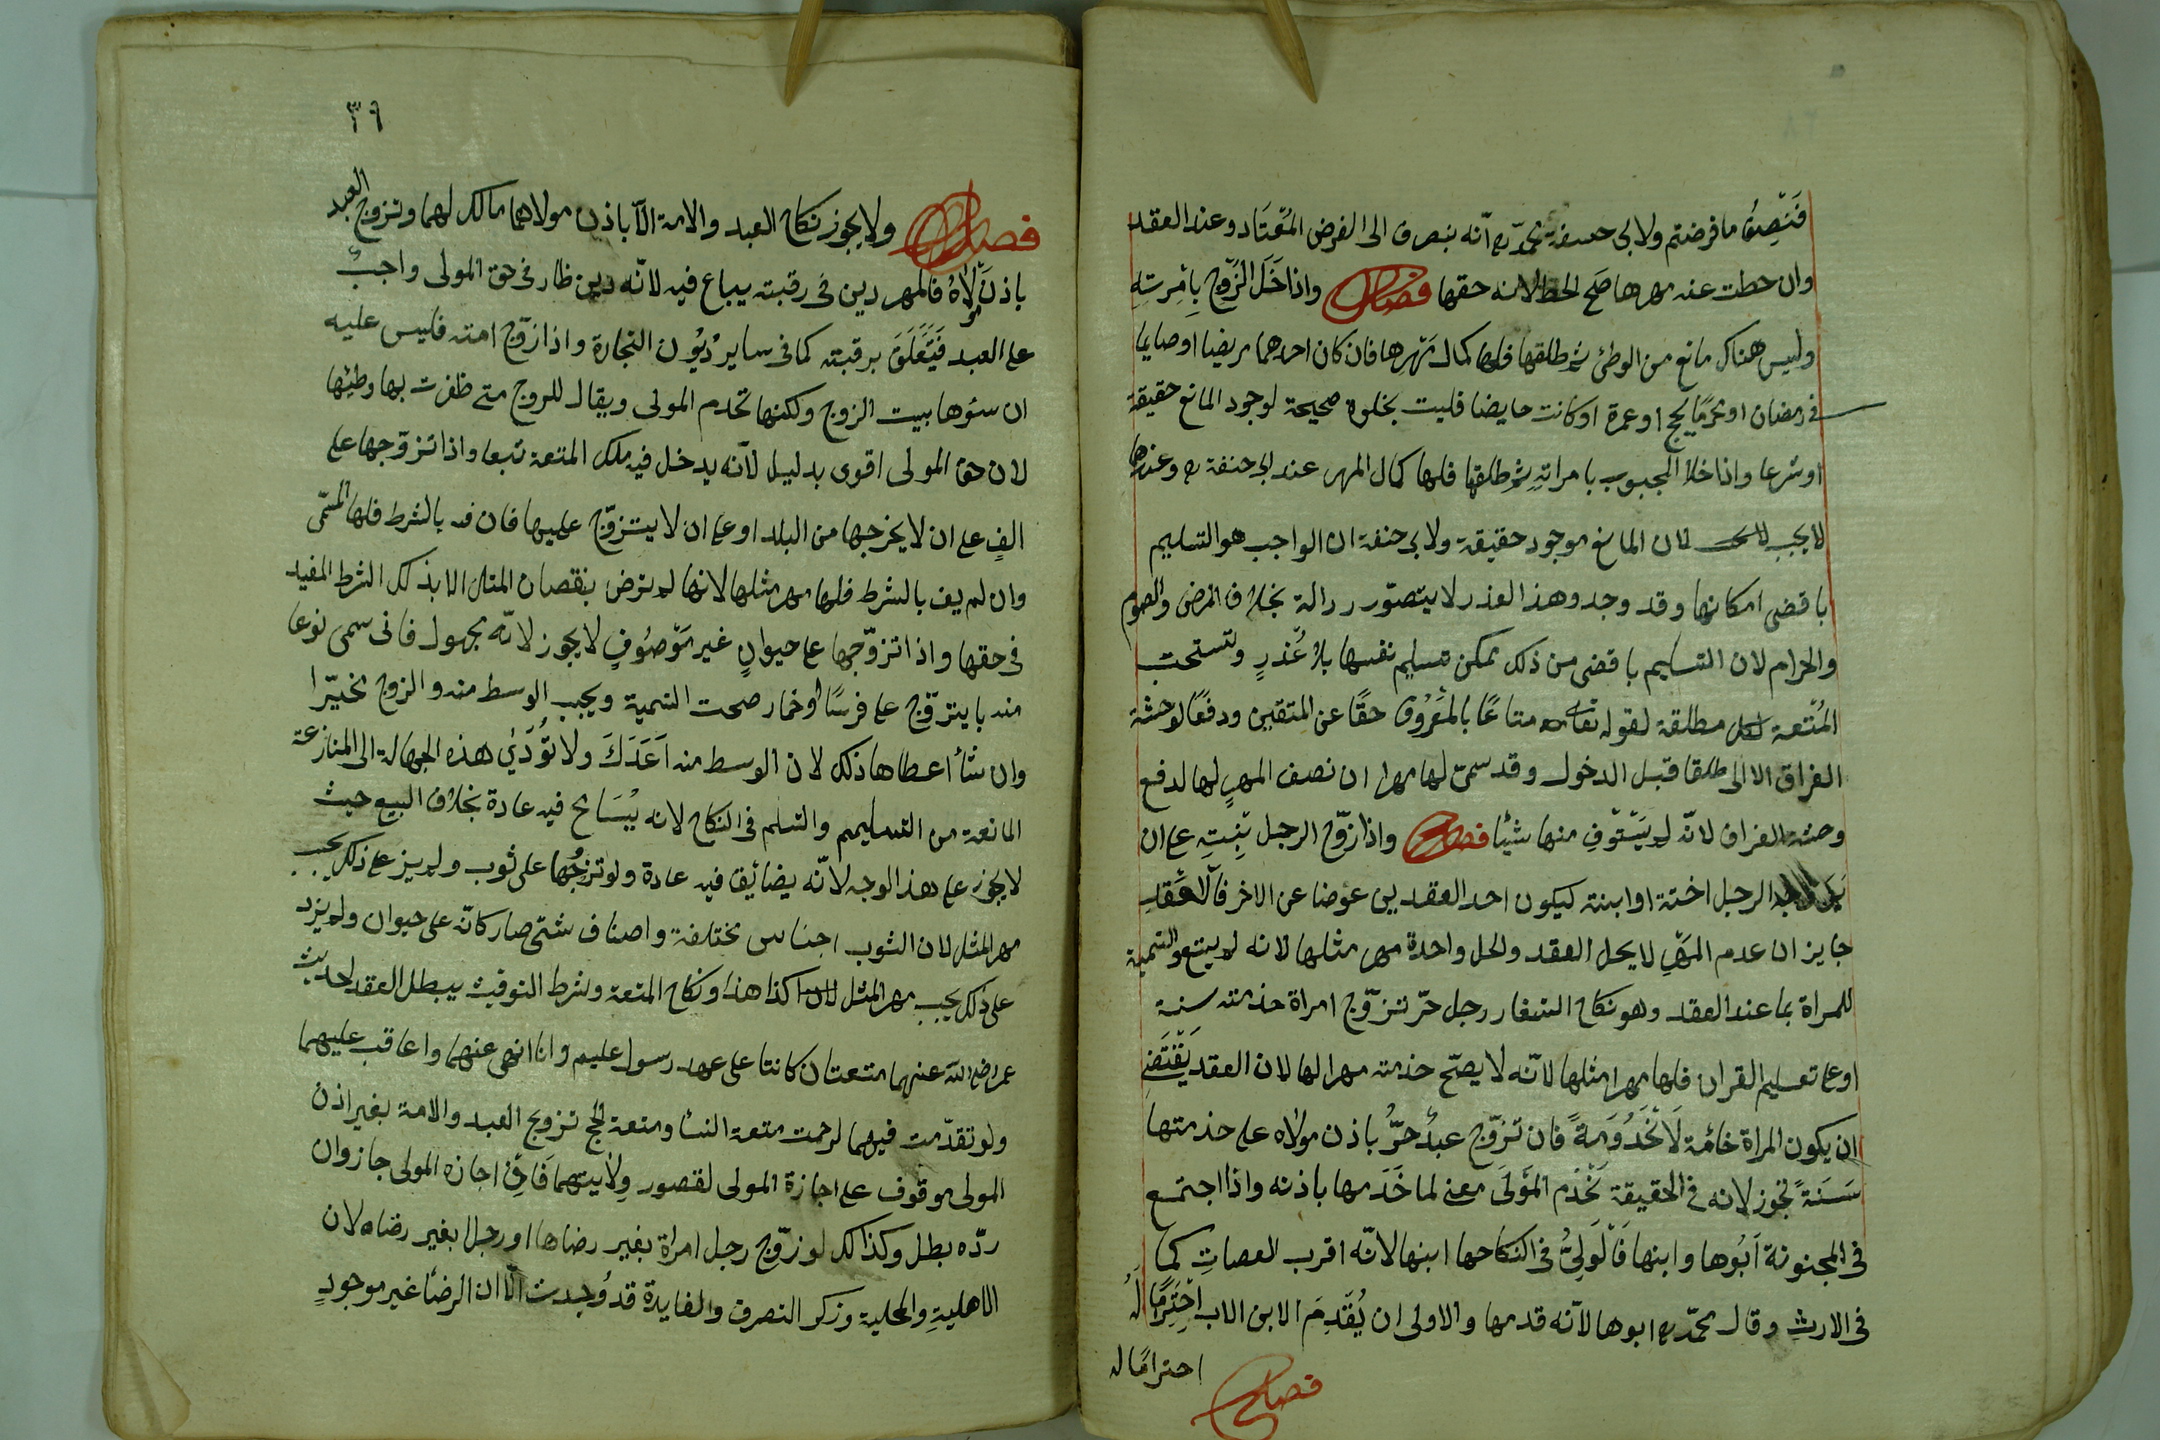 فَنَصِفُ ما فرضتم ولابى حنيفة محمّد رح انّه ينصرف الى الفرض المُعْتَاد وعند العقد
وان حطت عنه مهرها صَح الحط لانه حقها فصل واذا خَلَ الزَّوج بِامْرِتِهِ
وليس هناك مانع من الوطئ ثم طلقها فلها كمال مَهْرها فان كان احدهما مريضا او صايما
فى رمضان او مُحْرِمًا بحج او عمرة او كانت حايضا فليت بخلوة صحيحة لوجود المانع حقيقة
او شرعا واذا خلا المجبوب بامراته ثم طلقها فلها كمال المهر عند ابى حنفة رح وعندهما
لا يجب لان المانع موجود حقيقة ولابى حنفة ان الواجب هو التسليم
باقضى امكانها وقد وجد وهذا العذر لا يتصوّر زوالة بخلاف المرض والصوم
والحرام لان التسليم باقضى من ذلك يمكن تسليم نفسها بلا عُذرٍ وتستحب
المُتْعة لكل مطلقة لقوله تعالى متاعًا بالمَعْرُوْف حقًا عن المتقين ودفعًا لوحشة
الفراق الا التى طلقها قبل الدخول وقد سمىّ لها مهرا ان نصف المهرِ لها لدفع
وحشة الفراق لانّه لم يَسْتَوْفِ منها شيئا فصل واذا زوّج الرجل بِنْتِهِ على ان
الرجل اختة او ابنته ليكون احد العقدين عوضا عن الاخر فالْعَقدِ
جايز ان عدم المَهْرِ لا يحل العقد ولكل واحدة مهر مثلها لانه لم يتبع التسمية
للمراة بما عند العقد وهو نكاح الشغار رجل حرّ تزوّج امراة خذمته سنة
او على تعليم القران فلها مهرا مثلها لانّه لا يصحّ خذمته مهرا لها لان العقد يَقْتَضِ
ان يكون المراة خائمة لَا مَخْدُوَمةً فان تزوّج عبدٌ حرٌّ باذن مولاه على خذمتها
سَنَةً يجوز لانه فى الحقيقة يَخْدَم المَوْلَى معنى لما خَدَمها باذنه واذا اجتمع
فى المجنونة اَبُوها وابنها فَالْوَلِىُّ فى النكاحها ابنها لانّه اقرب العصاتِ كما
فى الارث وقال محمّد رح ابوها لآنّه قدمها والاولى ان يُقَدِمَ الابن الاب اِحْتِرَمًا لَهُ
احترامًا له
فصل
٣٩
فصل ولا يجوز نكاح العبد والامة الاّ باذن مولاهما مالك لهما وتزوج العبد
باذن مَوْلَاهُ فالمهر دين فى رقبته يباع فيه لانّه دين ظار فى حق المولى واجبٌ
على العبد فَتَعَلَقَ برقبته كما فى ساير دُيُون التجارة واذا زوّج امته فليس عليه
ان سئوها ببيت الزوج ولكنها تخدم المولى ويقال للزوج متى ظفرت بها وطئها
لان حق المولى اقوى بدليل لآنّه يدخل فيه ملك المتعة تبعا واذا تزوّجها على
الفٍ على ان لا يخرجها من البلد او على ان لا يتزوّج عليها فان فى بالشرط فلها المسَمّى
وان لم يف بالشرط فلها مهر مثلها لانها لم ترض بنقصان المثل الا بذلك الشرط المفيد
فى حقها واذا تزوّجها على حيوانٍ غير مَوْصُوفٍ لا يجوز لانّه مجهول فانى سمى نوعا
منه با يتزوّج على فرسًا او خمار صحت التسمية ويجب الوسط منه والزوج مخيّرا
وان شأ اعطاها ذلك لان الوسط منه اَعَدَكَ ولا تُؤَدّيْ هذه الجهالة الى المنازعة
المانعة من التسليمم والتسلم فى النكاح لانه يُسَامح فيه عادة بخلاف البيع حيث
لا يجوز على هذا الوجه لانّه يضائيقا فيه عادة ولو تزوجُها على ثوب ولم يز على ذلك يجب
مهر المثل لان الثوب اجناس مختلفة واصناف شتى صار كانّه على حيوان ولم يزد
على ذلك يجب مهر المثل كذا هذا ونكاح المتعة وشرط التوقيت يبطل العقد لحديث
عمر رضى الله عنهما متعتان كانتا على عهد رسول عليم وانا انهى عنهما واعاقب عليهما
ولو تقدّمت فيهما لرحمت متعة النسأ ومتعة الحج تزوج العبد والامة بغير اذن
المولى موقوف على اجازة المولى لقصور ولايتهما فَاِنْ اجازه المولى جاز وان
ردّه بطل وكذالك لو زوّج رجل امراة بغير رضاها او رجلا بغير رضاه لان
الاهليةِ والمحلية وذكر التصرف والفايدة قد وُجدت الّا ان الرضأ غير موجودٍ